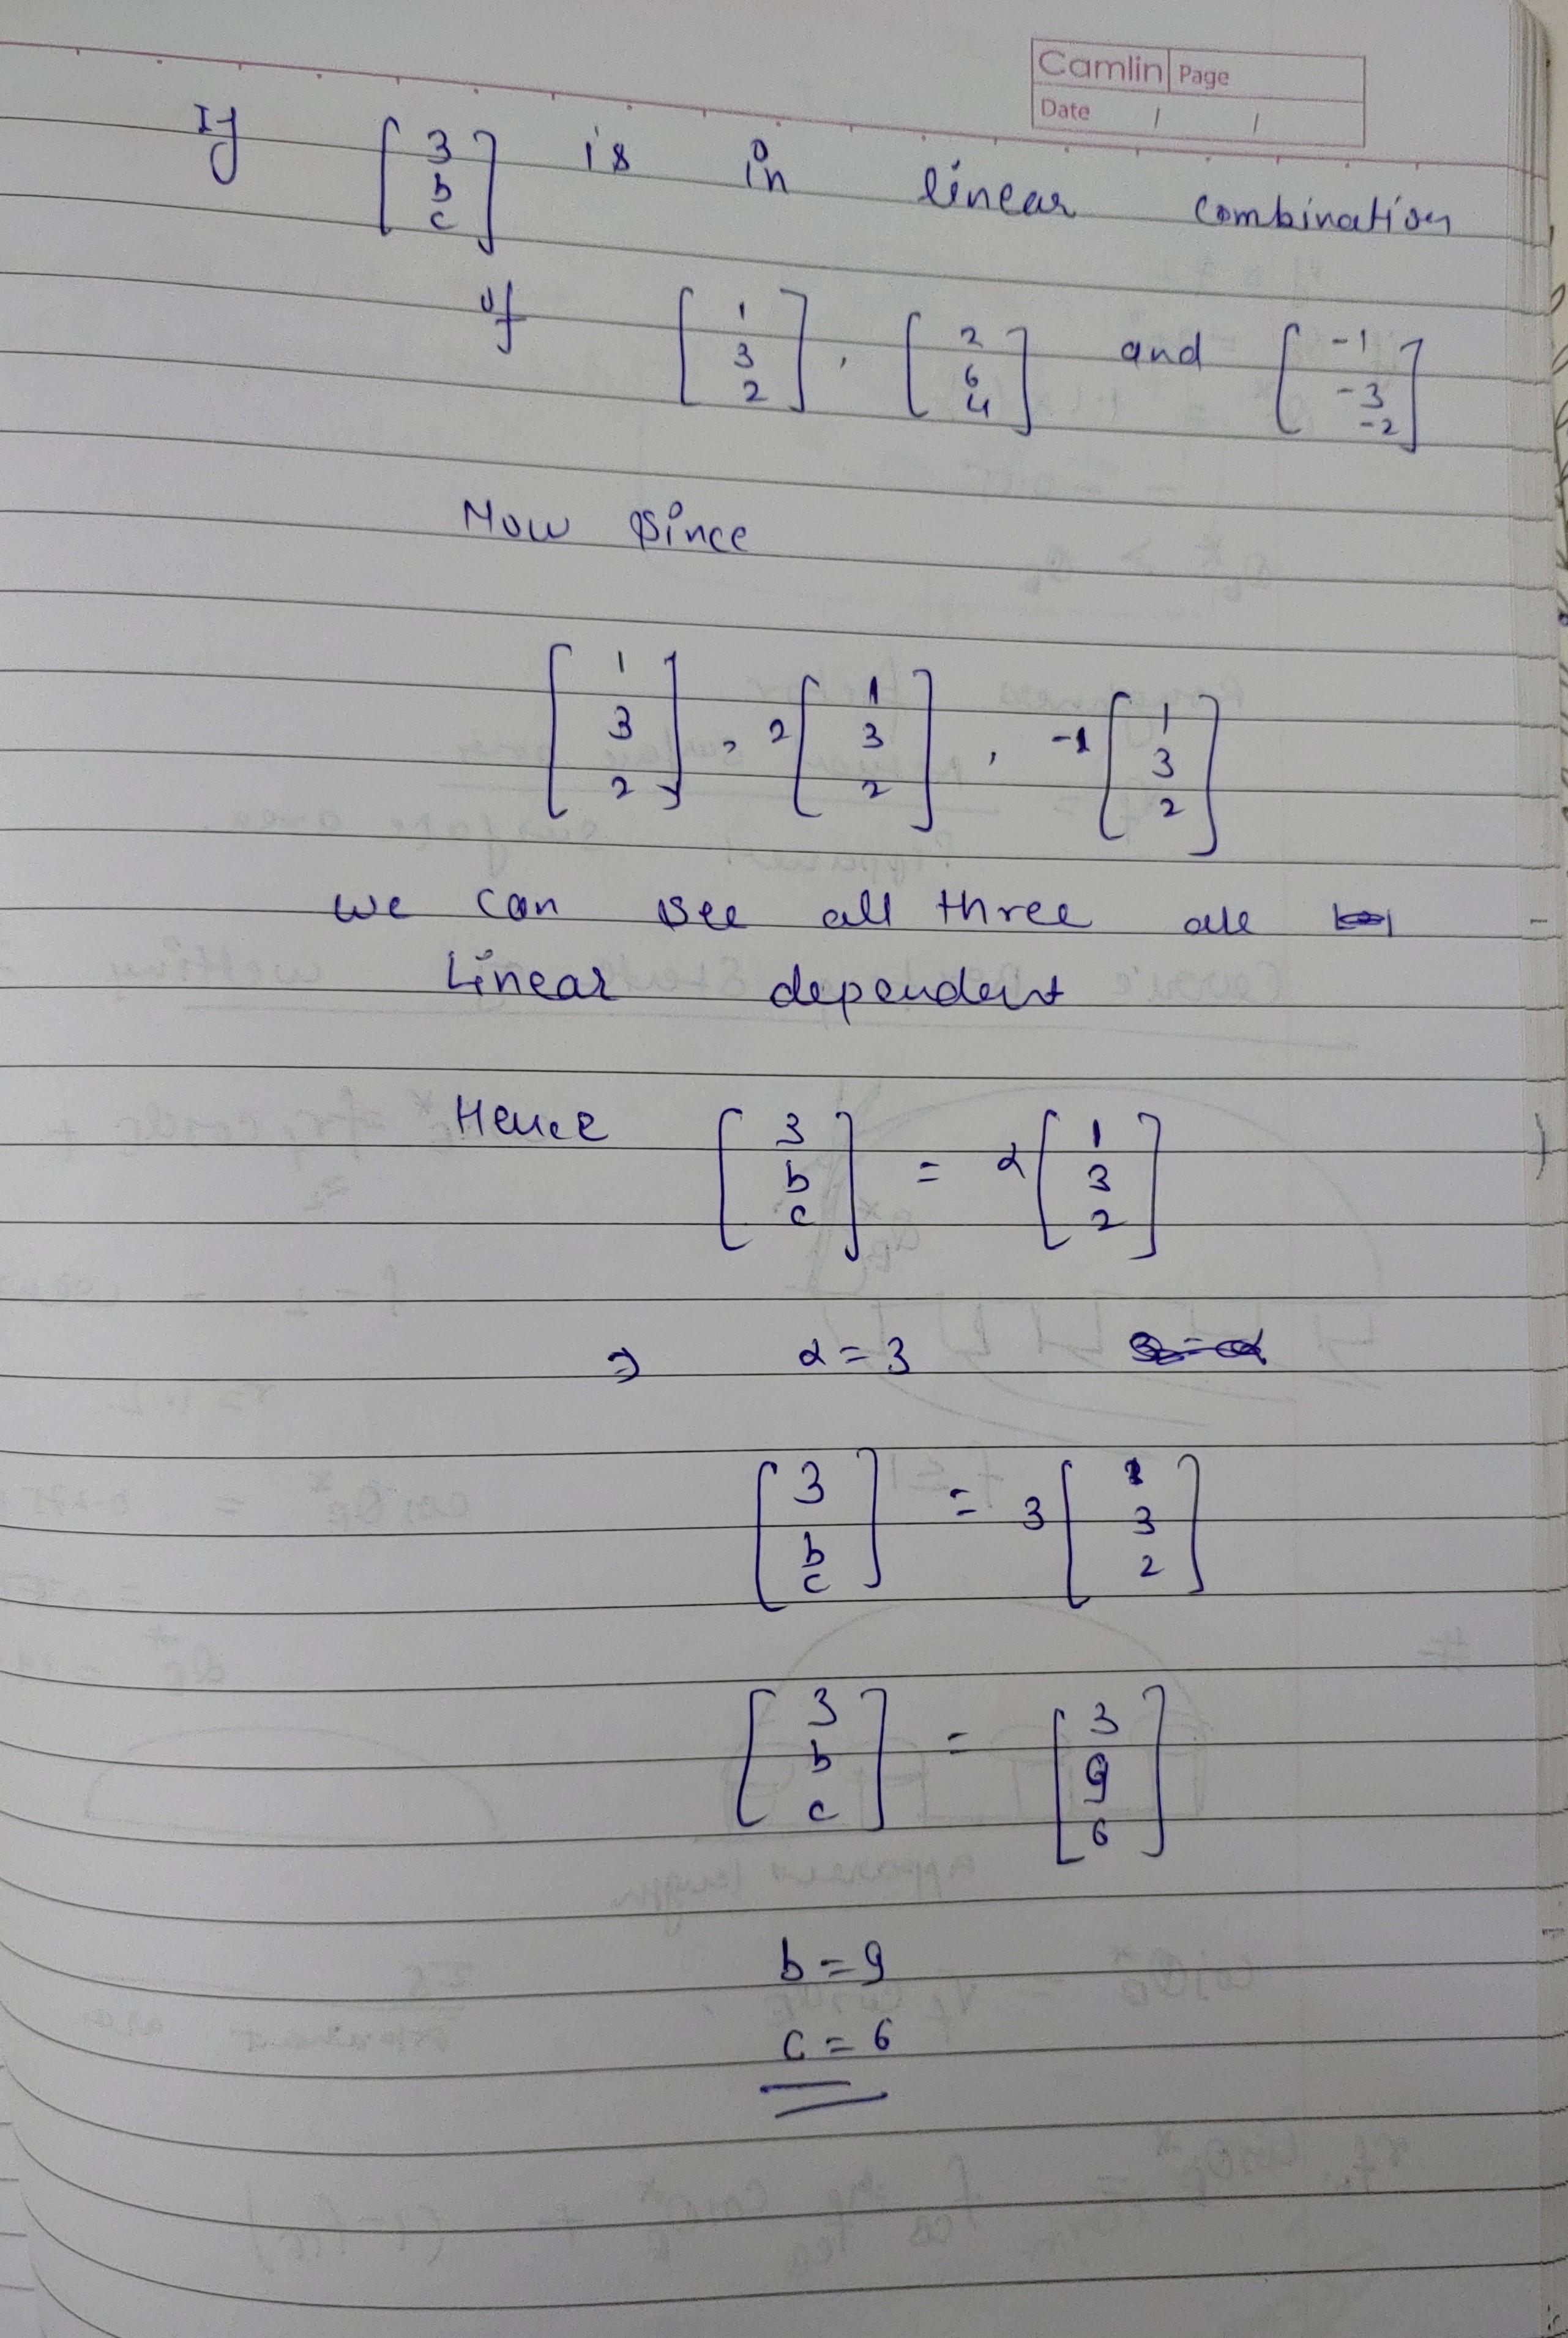 Camlin Page
Date / /
If [3 b c] is in linear combination
of [1 3 2] , [2 6 4] and [-1 -3 -2]
Now since
[1 3 2] , 2[1 3 2] , -1[1 3 2]
we can see all three are
Linear dependent
Hence [3 b c] = α[1 3 2]
⇒ α = 3
[3 b c] = 3[1 3 2]
[3 b c] = [3 9 6]
b = 9
c = 6